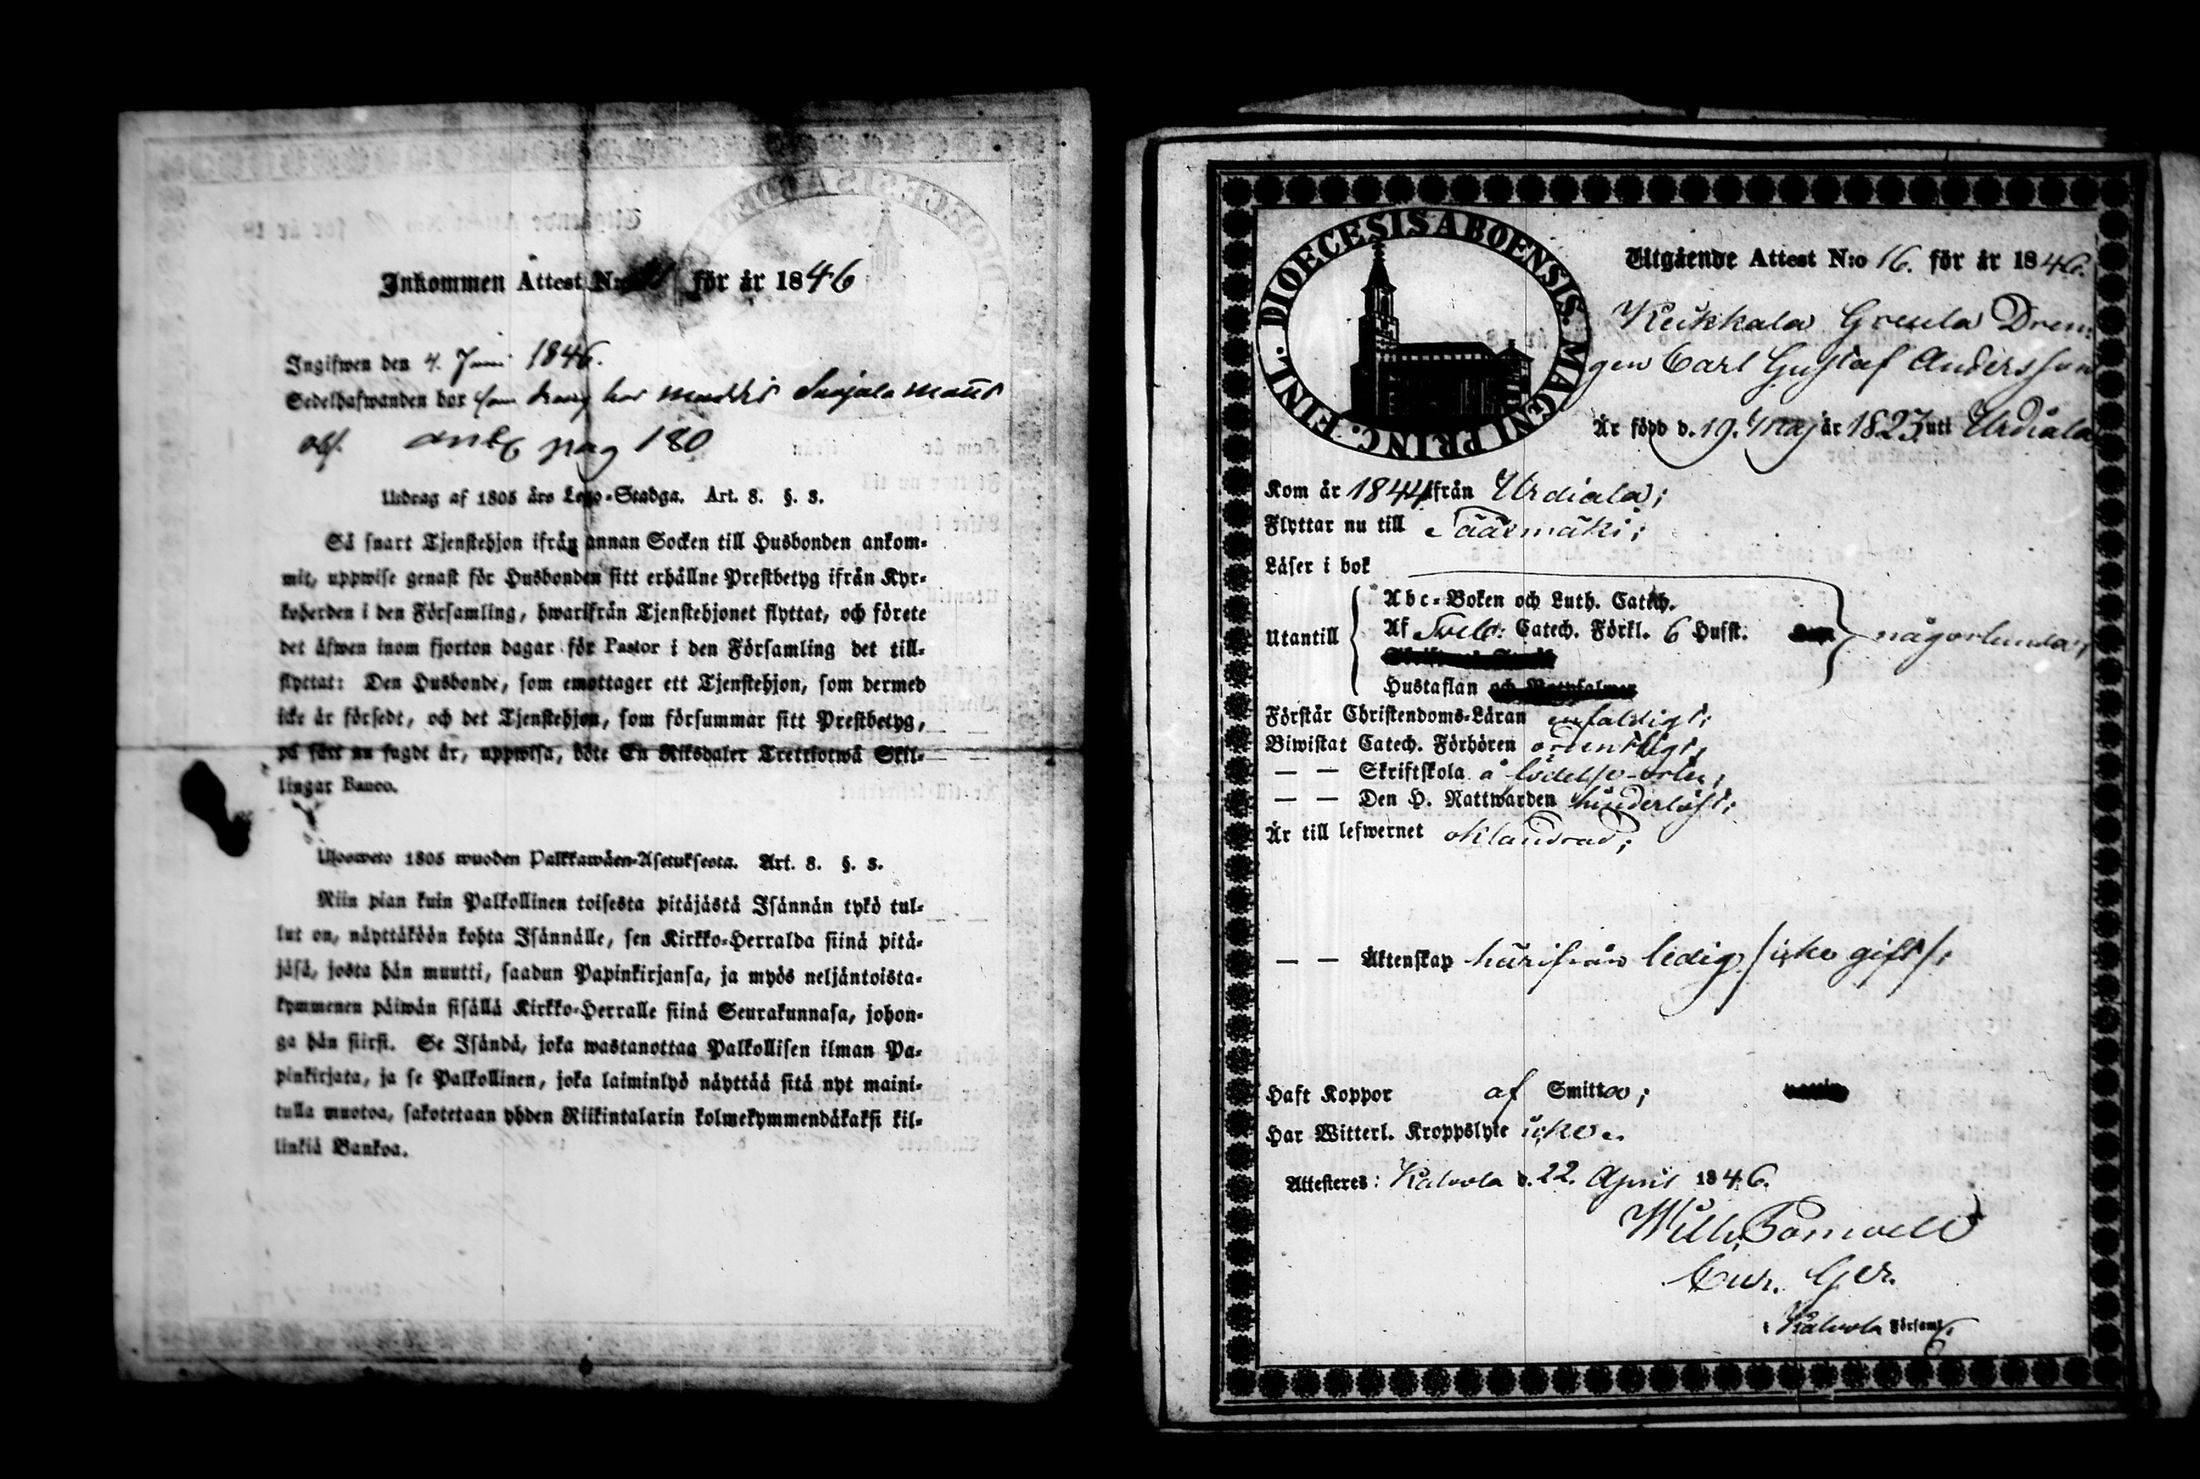 Inkommen Attest N:o för år 1846
Ingifwen den 4. Juni 1846.
Sedelhafwanden har som dräng hos
pag 180
Utdrag af 1805 års Lego-Stadga. Art. 8. §. 3.
Så snart Tjenstehjon ifrån annan Socken till Husbonden ankom-
mit, uppwise genast för Husbonden sitt erhållne Prestbetyg ifrån Kyr-
koherden i den Församling, hwarifrån Tjenstehjonet flyttat, och förete
det äfwen inom fjorton dagar för Pastor i den Församling det till-
flyttat: Den Husbonde, som emottager ett Tjenstehjon, som dermed
icke är försedt, och det Tjenstehjon, som försummar sitt Prestbetyg,
på sätt nu sagdt är, uppwisa, böte En Riksdaler Trettiotwå Skil-
lingar Banco.
Ulosweto 1805 wuoden Palkkawäen-Asetuksesta. Art. 8. §. 3.
Niin pian kuin Palkollinen toisesta pitäjästä Isännän tykö tul-
lut on, näyttäköön kohta Isännälle, sen Kirkko-Herralda siinä pitä-
jäsä, josta hän muutti, saadun Papinkirjansa, ja myös neljäntoista-
kymmenen päiwän sisällä Kirkko-Herralle siinä Seurakunnasa, johon-
ga hän siirsi. Se Isändä, joka wastanottaa Palkollisen ilman Pa-
pinkirjata, ja se Palkollinen, joka laiminlyö näyttää sitä nyt maini-
tulla muotoa, sakotetaan yhden Riikintalarin kolmekymmendäkaksi kil-
linkiä Bankoa.
DIOECESIS ABOENSIS. MAGNI PRINC. FINL.
Utgående Attest N:o 16. för år 1846.
Keikkala Greula Dren-
gen Carl Gustaf Andersson
Är född d. 19. Maj år 1823 uti Urdiala
Kom år 1844 ifrån Urdiala;
Flyttar nu till Sääxmäki;
Läser i bok
Utantill
Abc-Boken och Luth. Catech.
Af Svebs: Catech. Förkl. 6 Hufst. någorlunda;
Hustaflan
Förstår Christendoms-Läran enfaldigt;
Biwistat Catech. Förhören ordentligt;
— — Skriftskola å födelse-orten;
— — Den H. Nattwarden hinderlöst;
Är till lefwernet oklandrad;
— — Äktenskap härifrån ledig /icke gift/;
Haft Koppor af Smitta;
Har Witterl. Kroppslyte icke.
Attesteres: Kalvola d. 22. April 1846.
Wilh.
Cur. Ger.
i Kalvola Församl.